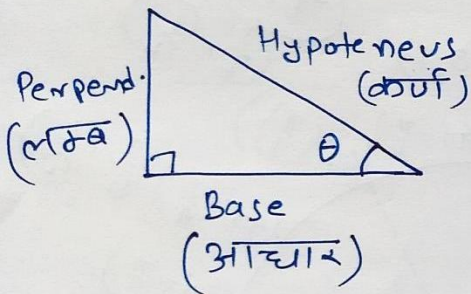 Hypoteneus
(कर्ण)
Perpend.
(लम्ब)
θ
Base
(आधार)